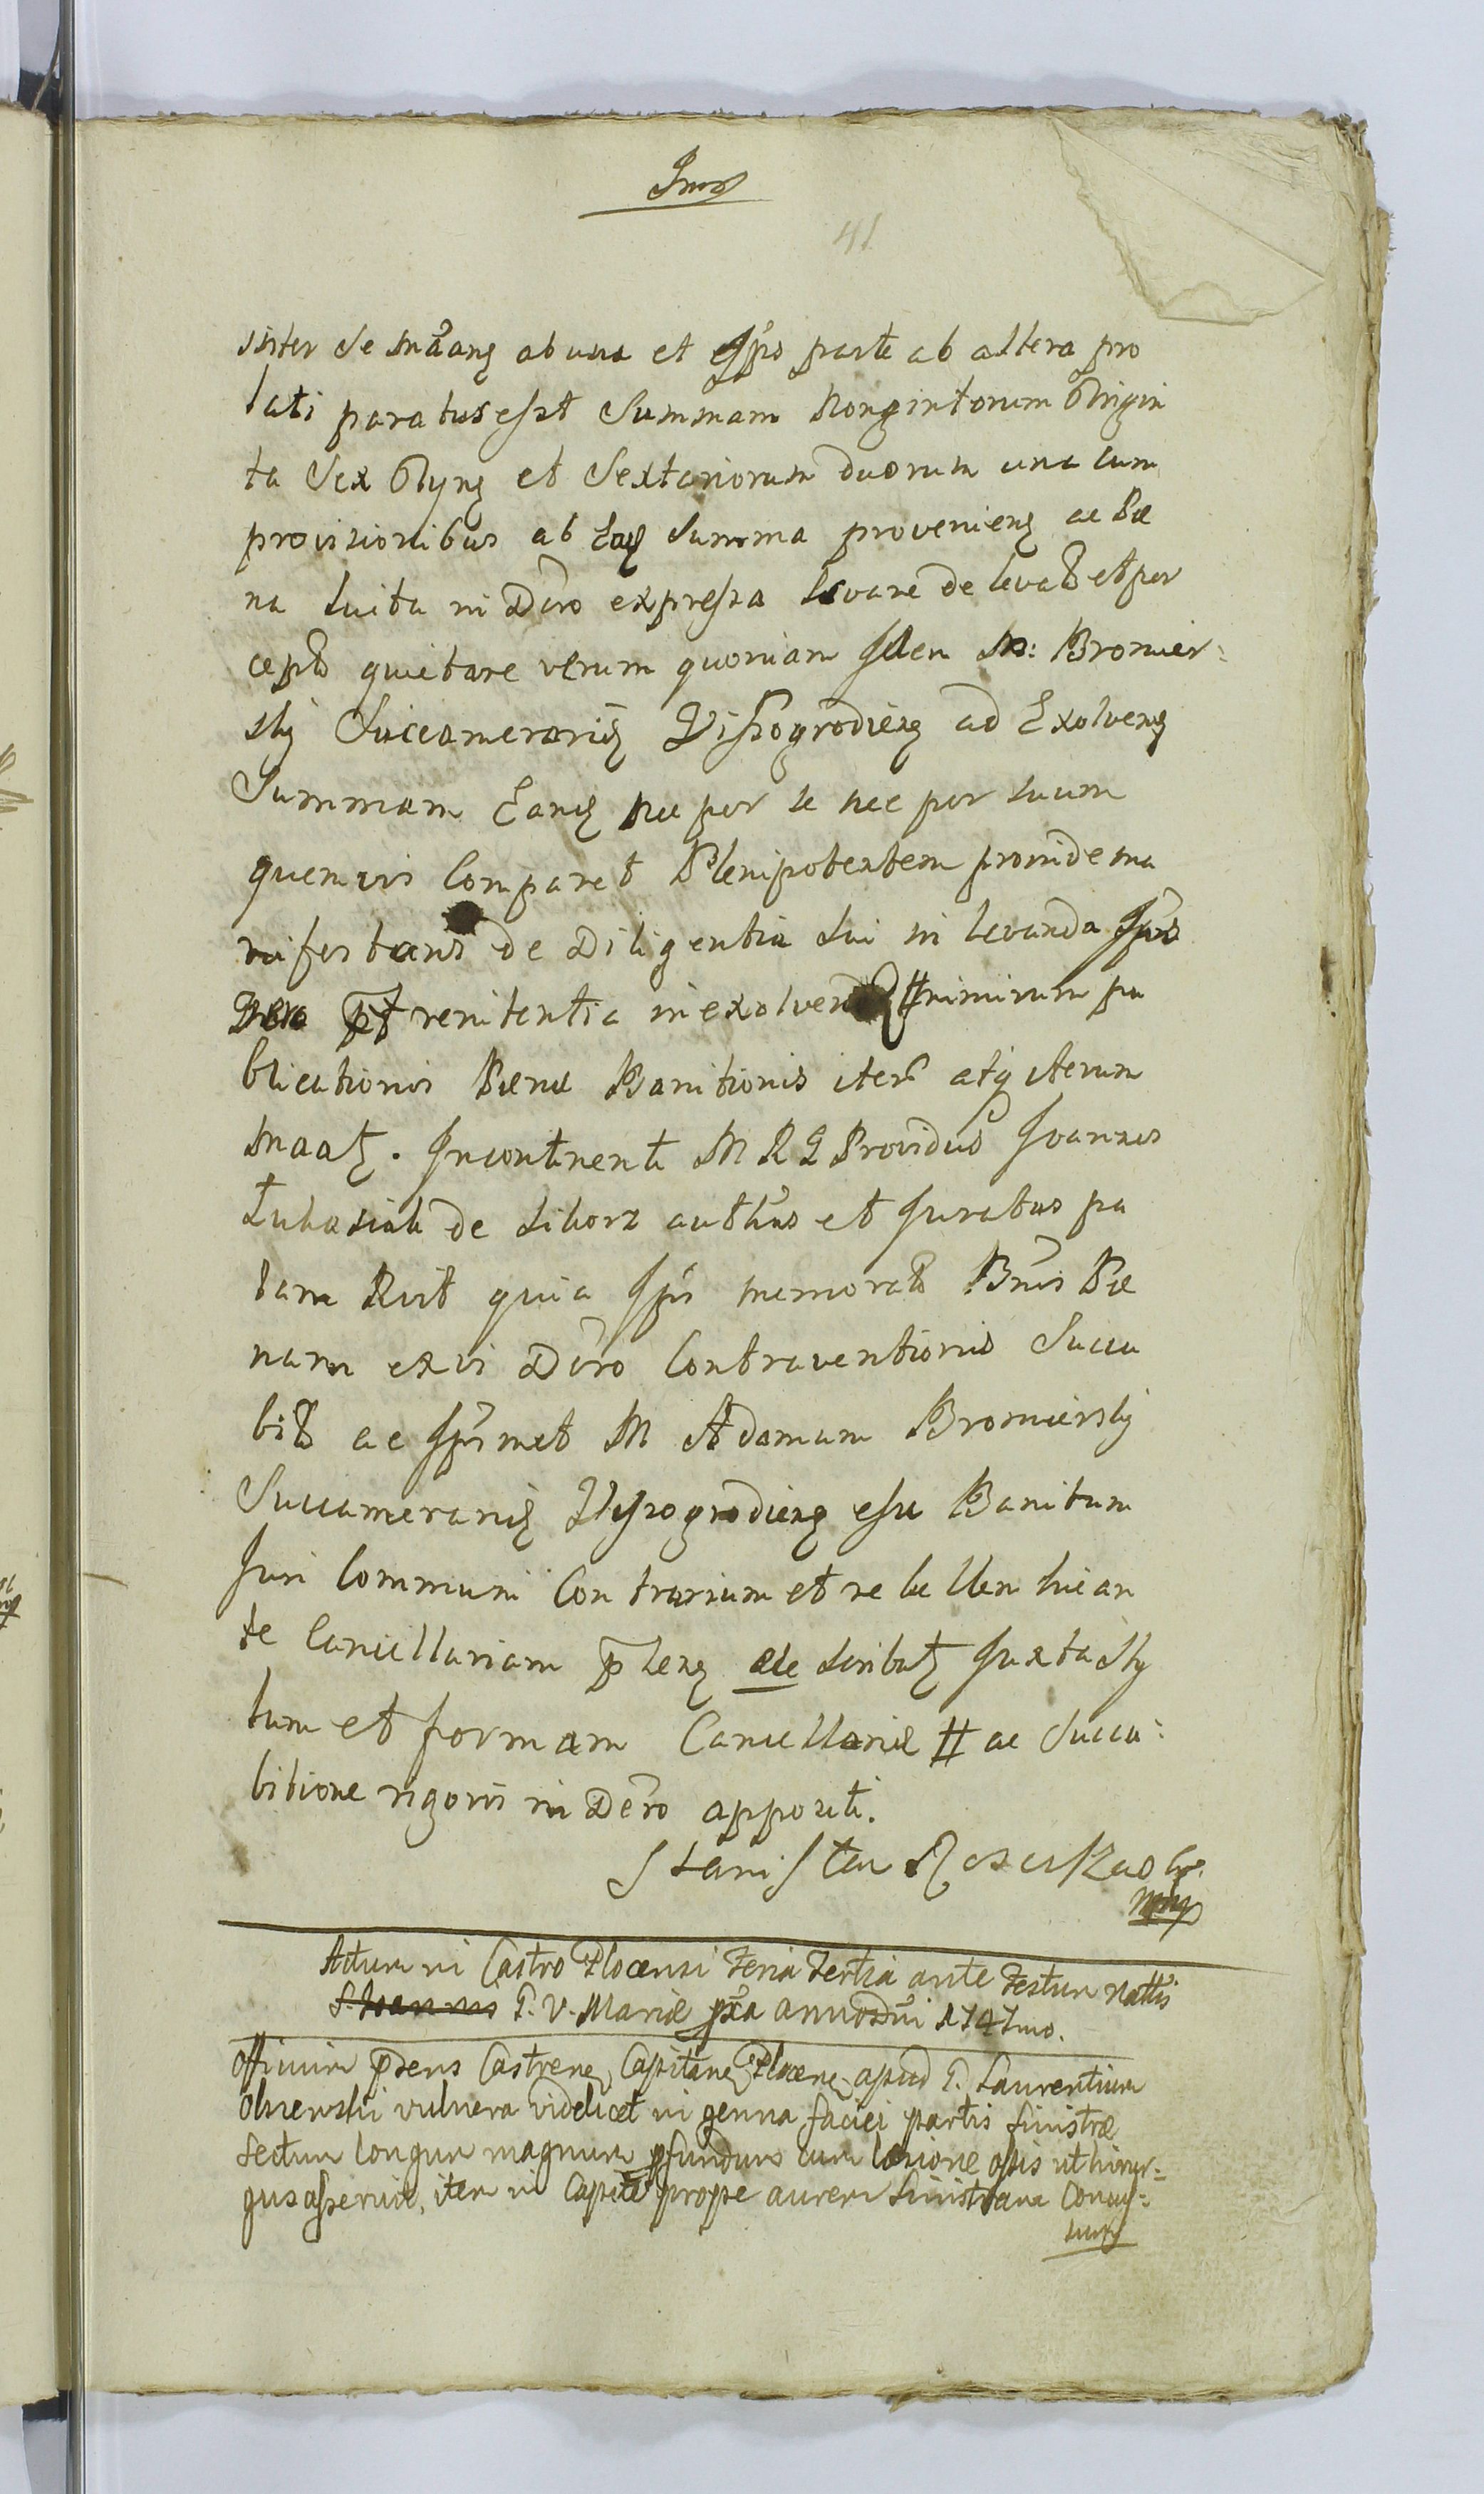 41
inter se mãang ab una et Ipso parte ab altera pro
lati paratus esset Summam Nongintorum Tringin
ta Sex Tyng et Sextariorum duorum una cum
provisionibus ab Eaq Summa provenieng ac Pæ
na luita in Dcro expressa levare de levato et per
cepto quietare verum quoniam Idem M: Bromier:
sky Succamerariq Vissogrodieng ad Exolveng
Summam Eanq nec per se nec per suum
quemvis Comparet Plenipotentem proinde ma
nifestans de Diligentia sui in levanda Ipso
vero renitentia in exolvend # nimirum pu
blicationis Pænæ Banitionis iter atq iterum
maatq. Incontinenti M R G Providus Ioannes
Lukasiak de Sikorz authus et Iuratus pa
lam Rvit quia Ipse memorato Bnis Pæ
nam ex vi Dcro Contraventionis Succu
bito ac Ipsimet M Adamum Bromiersky
Succamerariq Vissogrodieng esse Banitum
Iuri Communi Contrarium et rebellem hic an
te Cancellariam pleng ade scribatq Iuxta Sty
lum et formam Cancellariæ # ac Succu:
bitione rigoris in Dcro appositi.
Stanisław
mp
Actum in Castro Plocensi Feria Tertia ante Festum Nattis
S. Ioannis B. V. Mariæ pxa anno Dni 1747mo.
Officium pdens Castrene, Capitane, Plocene, apud G. Laurentium
Olszewski vulnera videlicet in genna faciei partis sinistræ
sectum longum magnum pfundum cum læsione ossis ut hirur:
gus asseruit, item in Capite prope aurem sinistram Concus:
sum